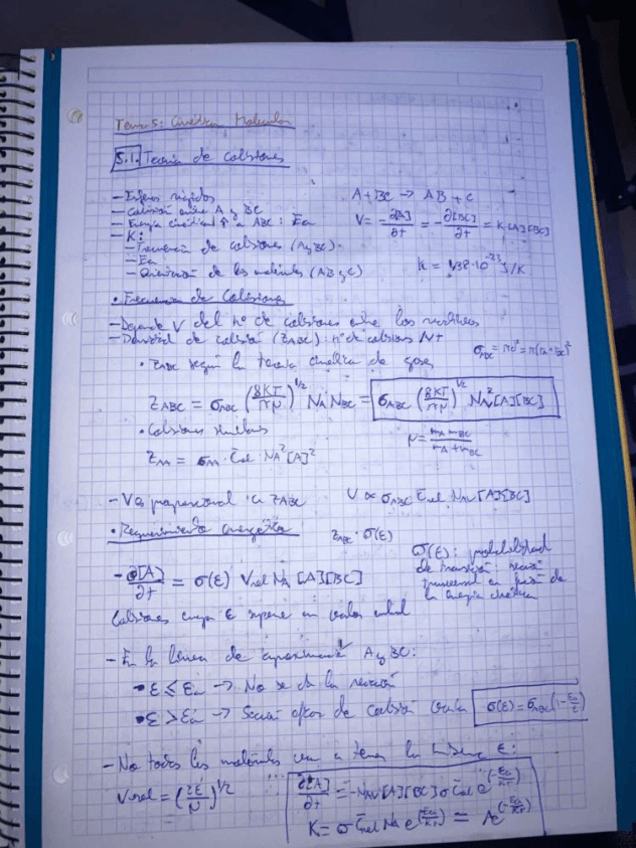 Tema 5: Cinética Molecular
5.1. Teoría de colisiones
- Esferas rígidas
A + BC → AB + C
- Colisión entre A y BC
- Energía cinética ABC: Ea
V = -∂[A]/∂t = -∂[BC]/∂t = K[A][BC]
- K:
- Frecuencia de colisiones (A y BC)
- Ea
- Orientación de las moléculas (AB y C)
k = 1'38·10^-23 J/K
• Frecuencia de Colisiones
- Depende V del nº de colisiones entre los reactivos
- Densidad de colisión (Z_ABC): nº de colisiones
• Z_ABC según la teoría cinética de gases
σ_ABC = πd² = π(r_A + r_BC)²
Z_ABC = σ_ABC (8KT/πμ)^1/2 N_A N_BC = σ_ABC (8KT/πμ)^1/2 N_AV² [A][BC]
• Colisiones
μ = m_A m_BC / m_A + m_BC
Z_AA = σ_AA · C_rel · N_A² [A]²
- V es proporcional a Z_ABC V ∝ σ_ABC C_rel N_AV [A][BC]
• Requerimiento energético
Z_ABC · σ(ε)
σ(ε): probabilidad de transición: sección transversal en función de la energía cinética
-∂[A]/∂t = σ(ε) V_rel N_A [A][BC]
Colisiones cuya ε supere un valor
- En la línea de A y BC:
• ε ≤ εa → No se da la reacción
• ε > εa → Sección de colisión σ(ε) = σ_ABC(1 - εa/ε)
- No todas las moléculas van a tener la misma ε:
V_rel = (2ε/μ)^1/2
∂[A]/∂t = -N_AV [A][BC] σ C_rel e^(-Ea/RT)
K = σ C_rel N_A e^(-Ea/RT) = A e^(-Ea/RT)